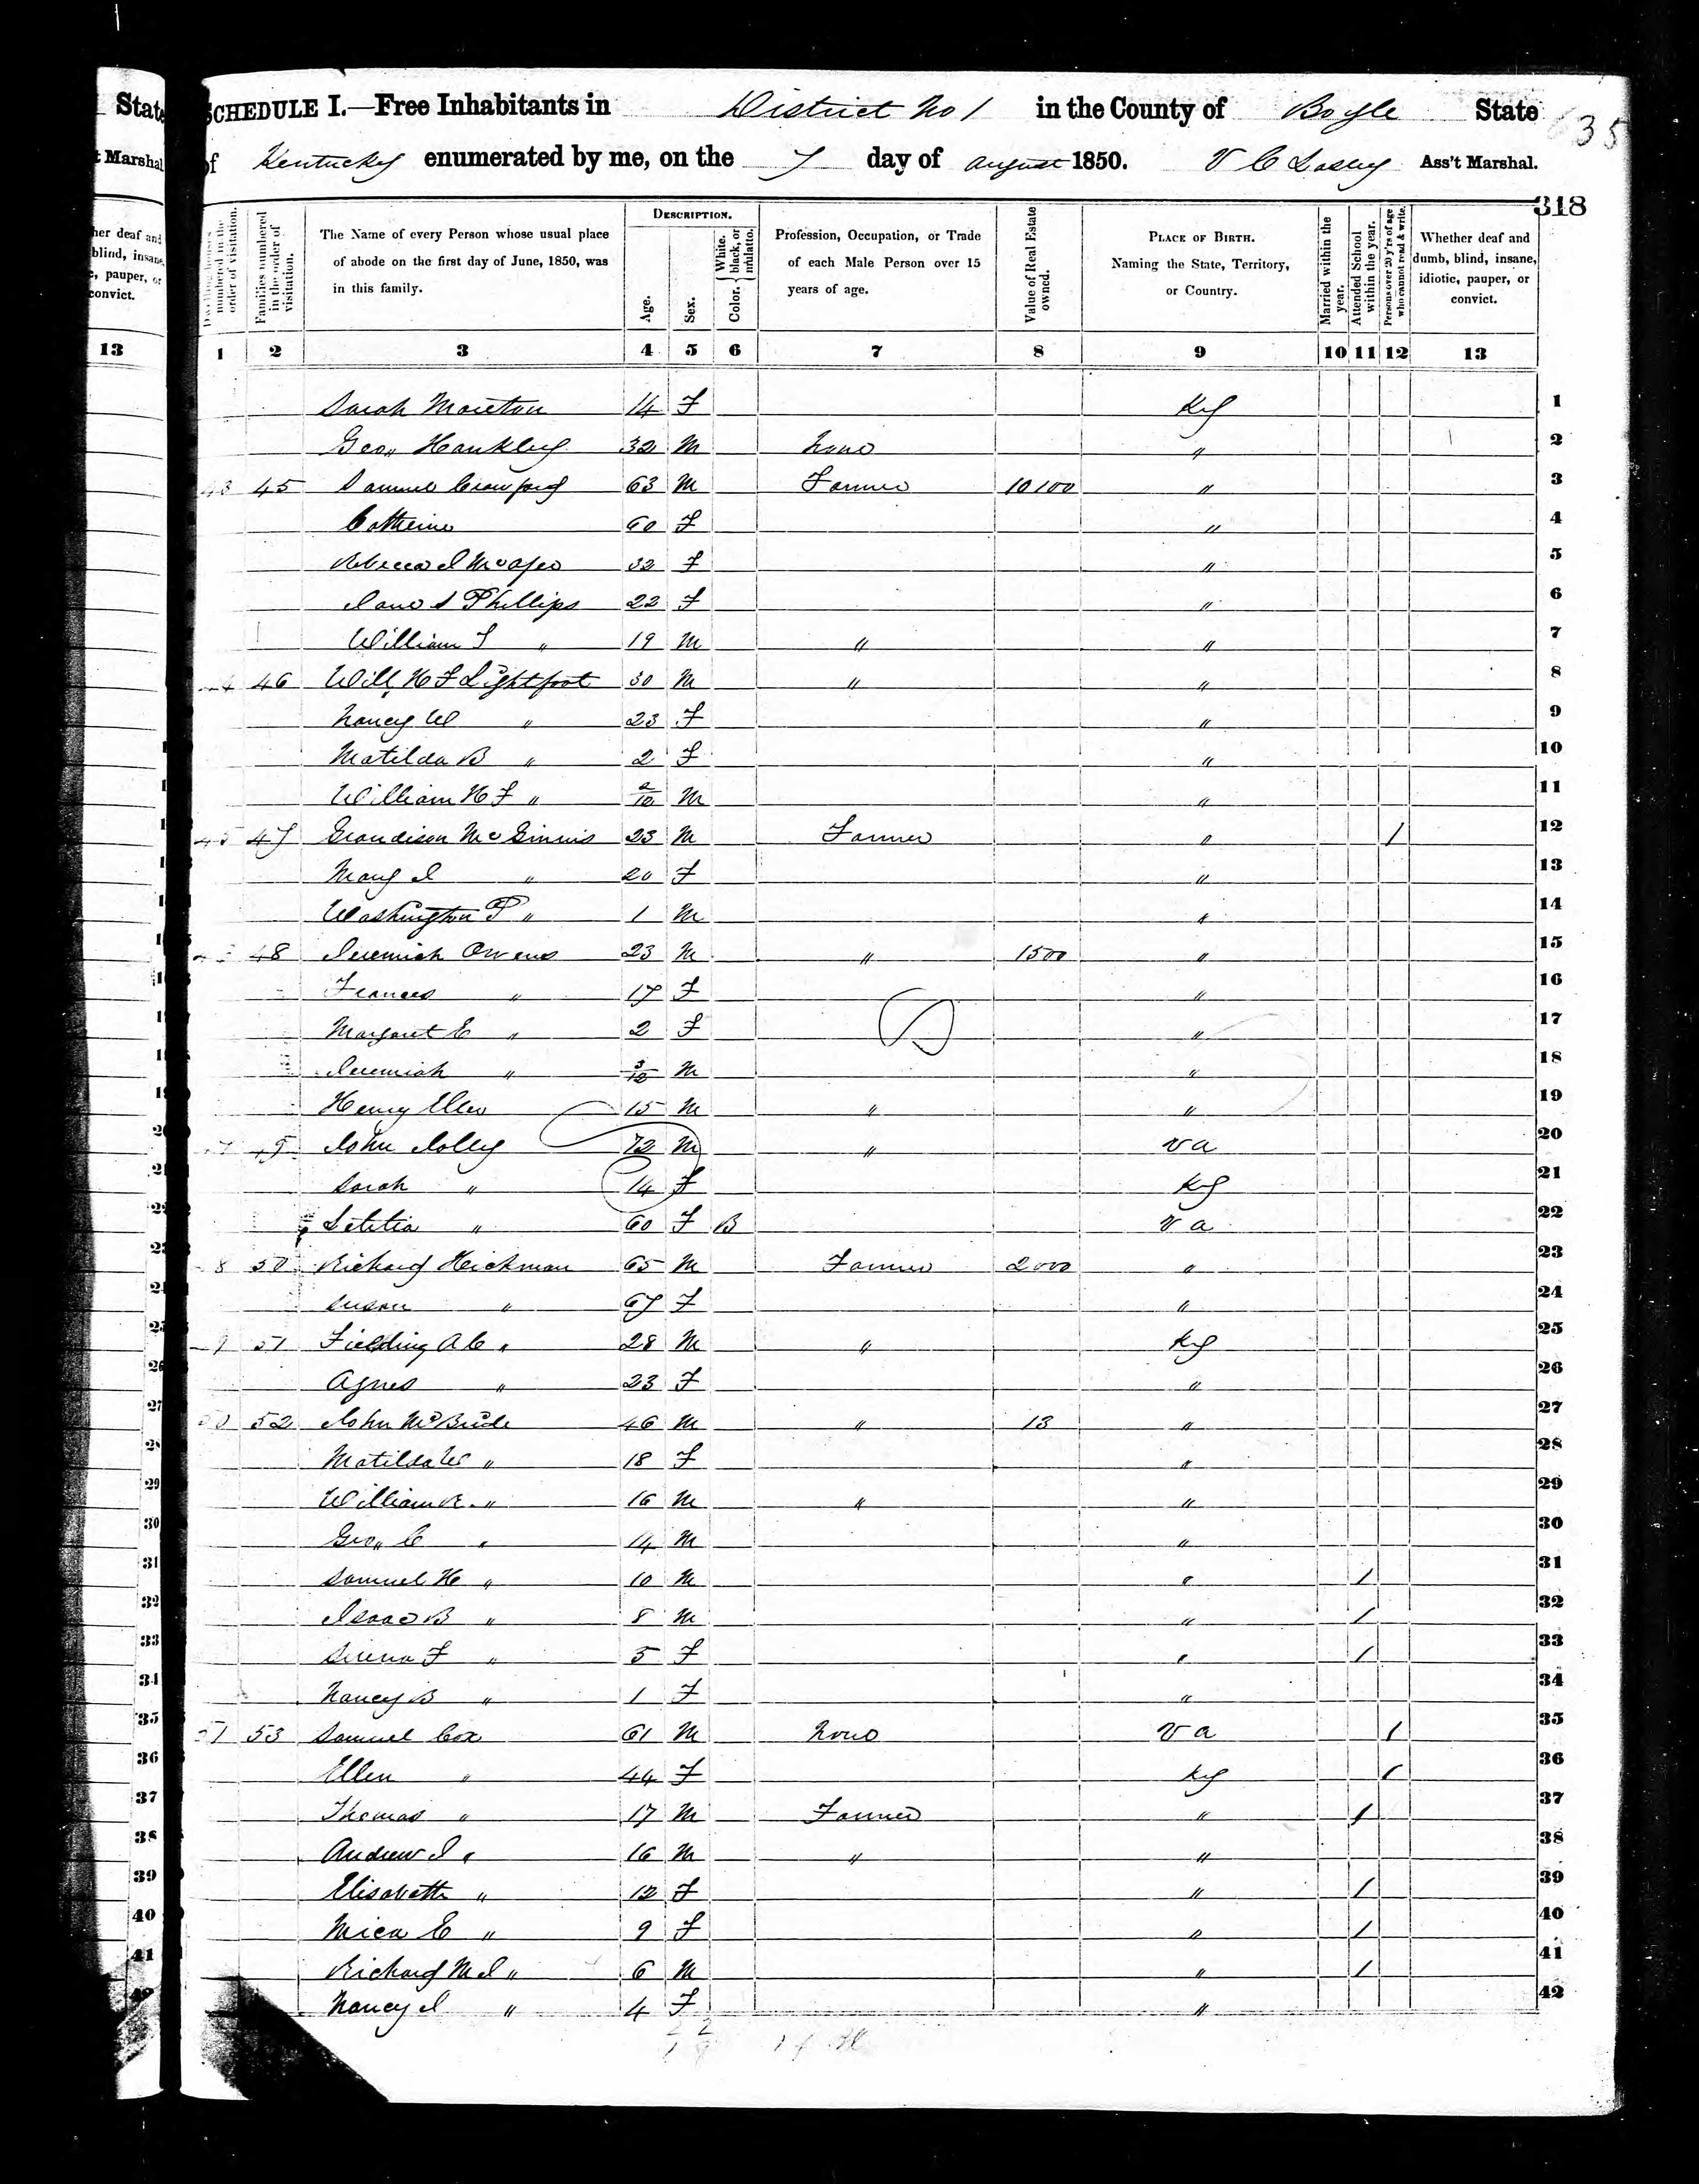 State
SCHEDULE I.—Free Inhabitants in District No 1 in the County of Boyle State
35
t Marshal
of Kentucky enumerated by me, on the 7 day of August 1850. Ass't Marshal.
318
her deaf and
blind, insane,
c, pauper, or
convict.
13
Dwelling-houses numbered in the order of visitation.
Families numbered in the order of visitation.
The Name of every Person whose usual place of abode on the first day of June, 1850, was in this family.
DESCRIPTION.
Age.
Sex.
Color. { White, black, or mulatto.
Profession, Occupation, or Trade of each Male Person over 15 years of age.
Value of Real Estate owned.
PLACE OF BIRTH. Naming the State, Territory, or Country.
Married within the year.
Attended School within the year.
Persons over 20 y'rs of age who cannot read & write.
Whether deaf and dumb, blind, insane, idiotic, pauper, or convict.
1 2 3 4 5 6 7 8 9 10 11 12 13
Sarah 14 F Ky 1
Geo,, Hankley 32 M None " 2
43 45 Samuel Crawford 63 M Farmer 10100 " 3
Catherine 60 F " 4
Rebecca J McAfee 32 F " 5
Jane S Phillips 22 F " 6
William T " 19 M " " 7
46 Will, H F Lightfoot 30 M " " 8
Nancy W " 23 F " 9
Matilda B " 2 F " 10
William H F " 2/12 M " 11
45 47 Grandison McGinnis 23 M Farmer " / 12
Mary J " 20 F " 13
Washington P " 1 M " 14
48 Jeremiah Owens 23 M " 1500 " 15
Frances " 17 F " 16
Margaret E " 2 F " 17
Jeremiah " 3/12 M " 18
Henry 15 M " " 19
49 John Jolly 72 M " Va 20
Sarah " 14 F Ky 21
Letitia " 60 F B Va 22
8 50 Richard Hickman 65 M Farmer 2000 " 23
Susan " 67 F " 24
9 51 Fielding A C " 28 M " Ky 25
Agnes " 23 F " 26
50 52 John McBride 46 M " 13 " 27
Matilda W " 18 F " 28
William R. " 16 M " " 29
Geo,, C " 14 M " 30
Samuel H " 10 M " / 31
Isaac B " 8 M " / 32
Serena F " 5 F " / 33
Nancy B " 1 F " 34
51 53 Samuel Cox 61 M None Va / 35
Ellen " 44 F Ky / 36
Thomas " 17 M Farmer " / 37
Andrew J " 16 M " " 38
Elisabeth " 12 F " / 39
Mica E " 9 F " / 40
Richard M J " 6 M " / 41
Nancy J " 4 F " 42